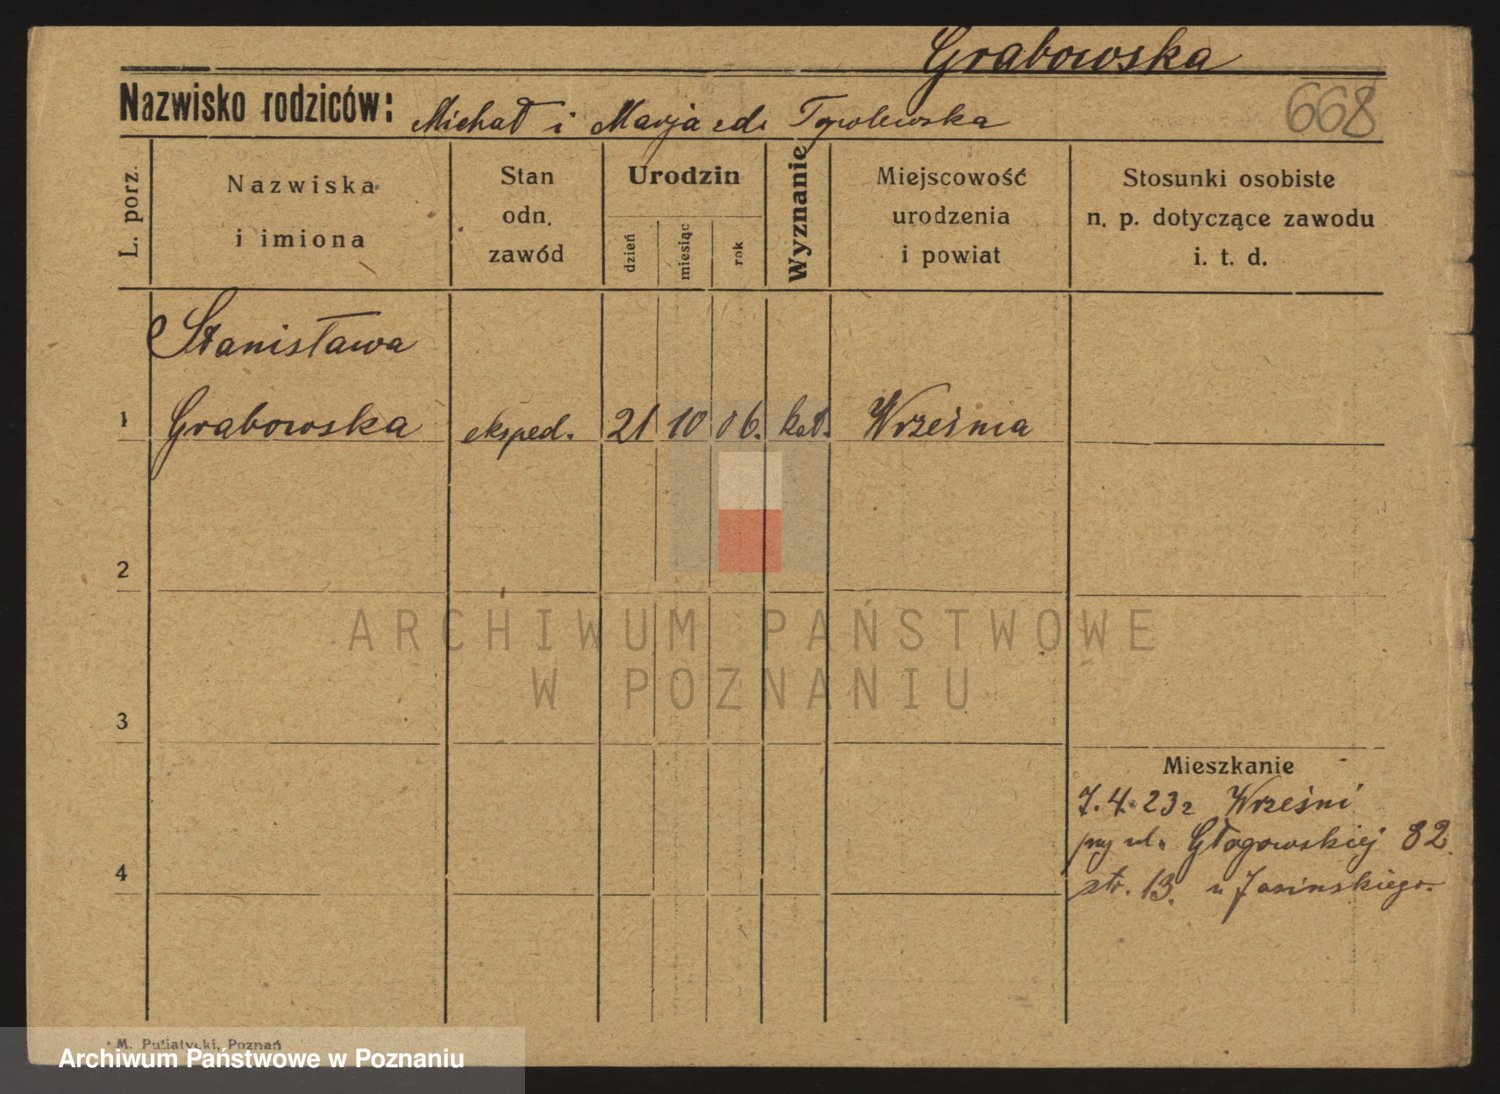 Grabowska
668
Nazwisko rodziców: Michał i Marja zd. Topolewska
L. porz.
Nazwiska
i imiona
Stan
odn.
zawód
Urodzin
dzień
miesiąc
rok
Wyznanie
Miejscowość
urodzenia
i powiat
Stosunki osobiste
n. p. dotyczące zawodu
i. t. d.
Stanisława
1 Grabowska eksped. 21 10 06. kat. Września
2
ARCHIWUM PAŃSTWOWE
W POZNANIU
3
Mieszkanie
7.4.23 z Wrześni
przy ul. Głogowskiej 82.
4
str. 13. u Jasinskiego.
M. Putiatycki, Poznań
Archiwum Państwowe w Poznaniu